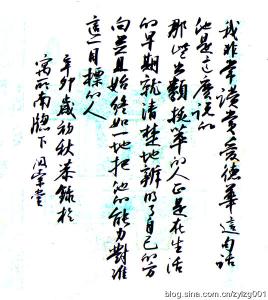 我非常讚賞愛德華這句話
他是這麼說的
那些出類拔萃的人正是在生活
的早期就清楚地辨明了自己的方
向並且始終如一地把他的能力對準
這一目標的人
辛卯歲初秋恭錄於
寓所南窗下
blog.sina.com.cn/zylzg001